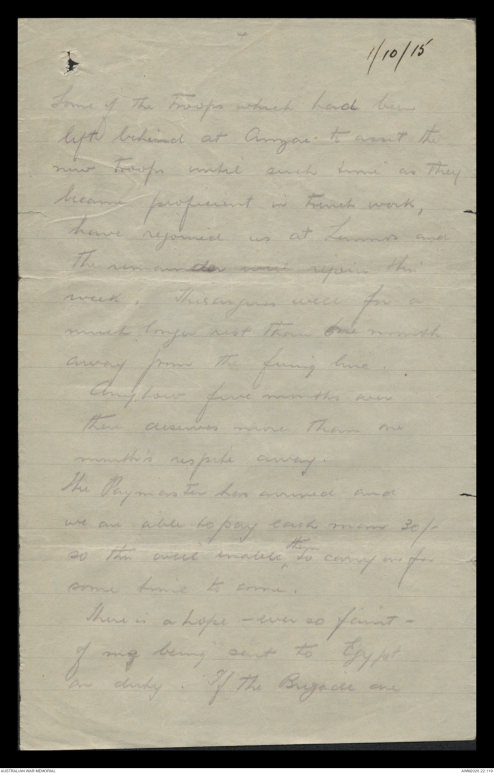 1/10/15
Some of the Troops which had been
left behind at Anzac to assist the
new troops until such time as they
became proficient in trench work,
have rejoined us at Lemnos and
the remainder will rejoin this
week. This augurs well for a
much longer rest than one month
away from the firing line.
Anyhow five months over
there deserves more than one
month's respite away.
The Paymaster has arrived and
we are able to pay each man 30/-
so this will enable them to carry on for
some time to come.
There is a hope - ever so faint -
of my being sent to Egypt
on duty. If the Brigade are
AUSTRALIAN WAR MEMORIAL